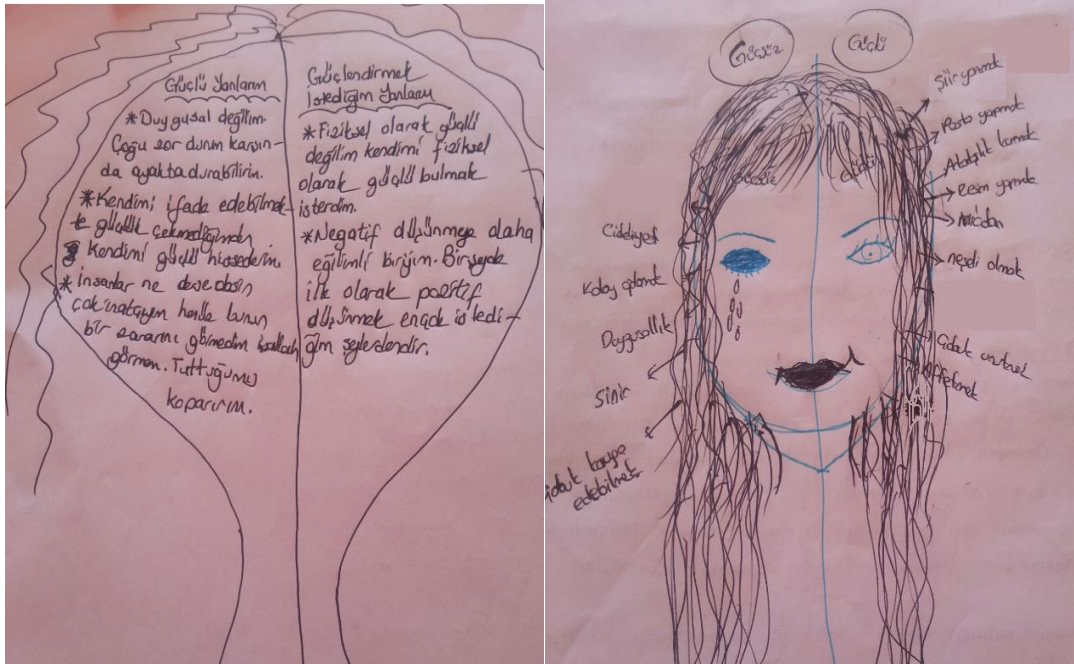 Güçlü Yanlarım
* Duygusal değilim.
Çoğu zor durum karşın-
da ayakta durabilirim.
* Kendimi ifade edebilmek-
te güçlük çekmediğimden
kendimi güçlü hissederim.
* İnsanlar ne derse desin
çok inatçıyım henüz bunun
bir zararını görmedim inşallah
görmem. Tuttuğumu
koparırım.
Güçlendirmek
İstediğim Yanlarım
* Fiziksel olarak güçlü
değilim kendimi fiziksel
olarak güçlü bulmak
isterdim.
* Negatif düşünmeye daha
eğilimli biriyim. Birşeyde
ilk olarak pozitif
düşünmek en çok istedi-
ğim şeylerdendir.
Güçsüz
Güçlü
Ciddiyet
Kolay ağlamak
Duygusallık
Sinir
çabuk kavga
edebilmek
Şiir yazmak
Pasta yapmak
Arkadaşlık kurmak
Resim yapmak
Vicdan
neşeli olmak
Çabuk unutmak
Affetmek